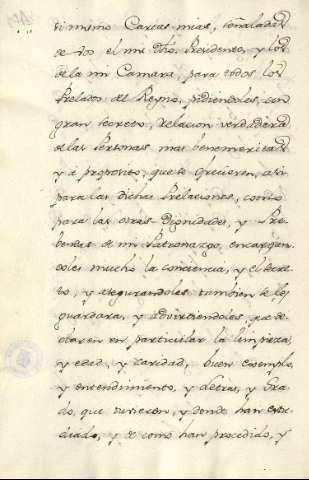 si mismo Cartas mias, señaladas
de vos el mi Pres. Presidente, y los
de la mi Camara, para todos los
Prelados del Reyno, pidiendoles, con
gran secreto, relacion verdadera
de las Personas mas benemeritas
y a proposito, que se ofrecieren, asi
para las dichas Prelaciones, como
para las otras Dignidades, y Pre-
bendas de mi Patronazgo, encargan-
doles mucho la conciencia, y el secre-
to, y asegurandoles tambien se les
guardara, y advirtiendoles, que de-
claren en particular la limpieza,
y edad, y caridad, buen exemplo,
y entendimiento, y Letras, y Gra-
do, que tuvieren, y donde han estu-
diado, y de como han procedido, y